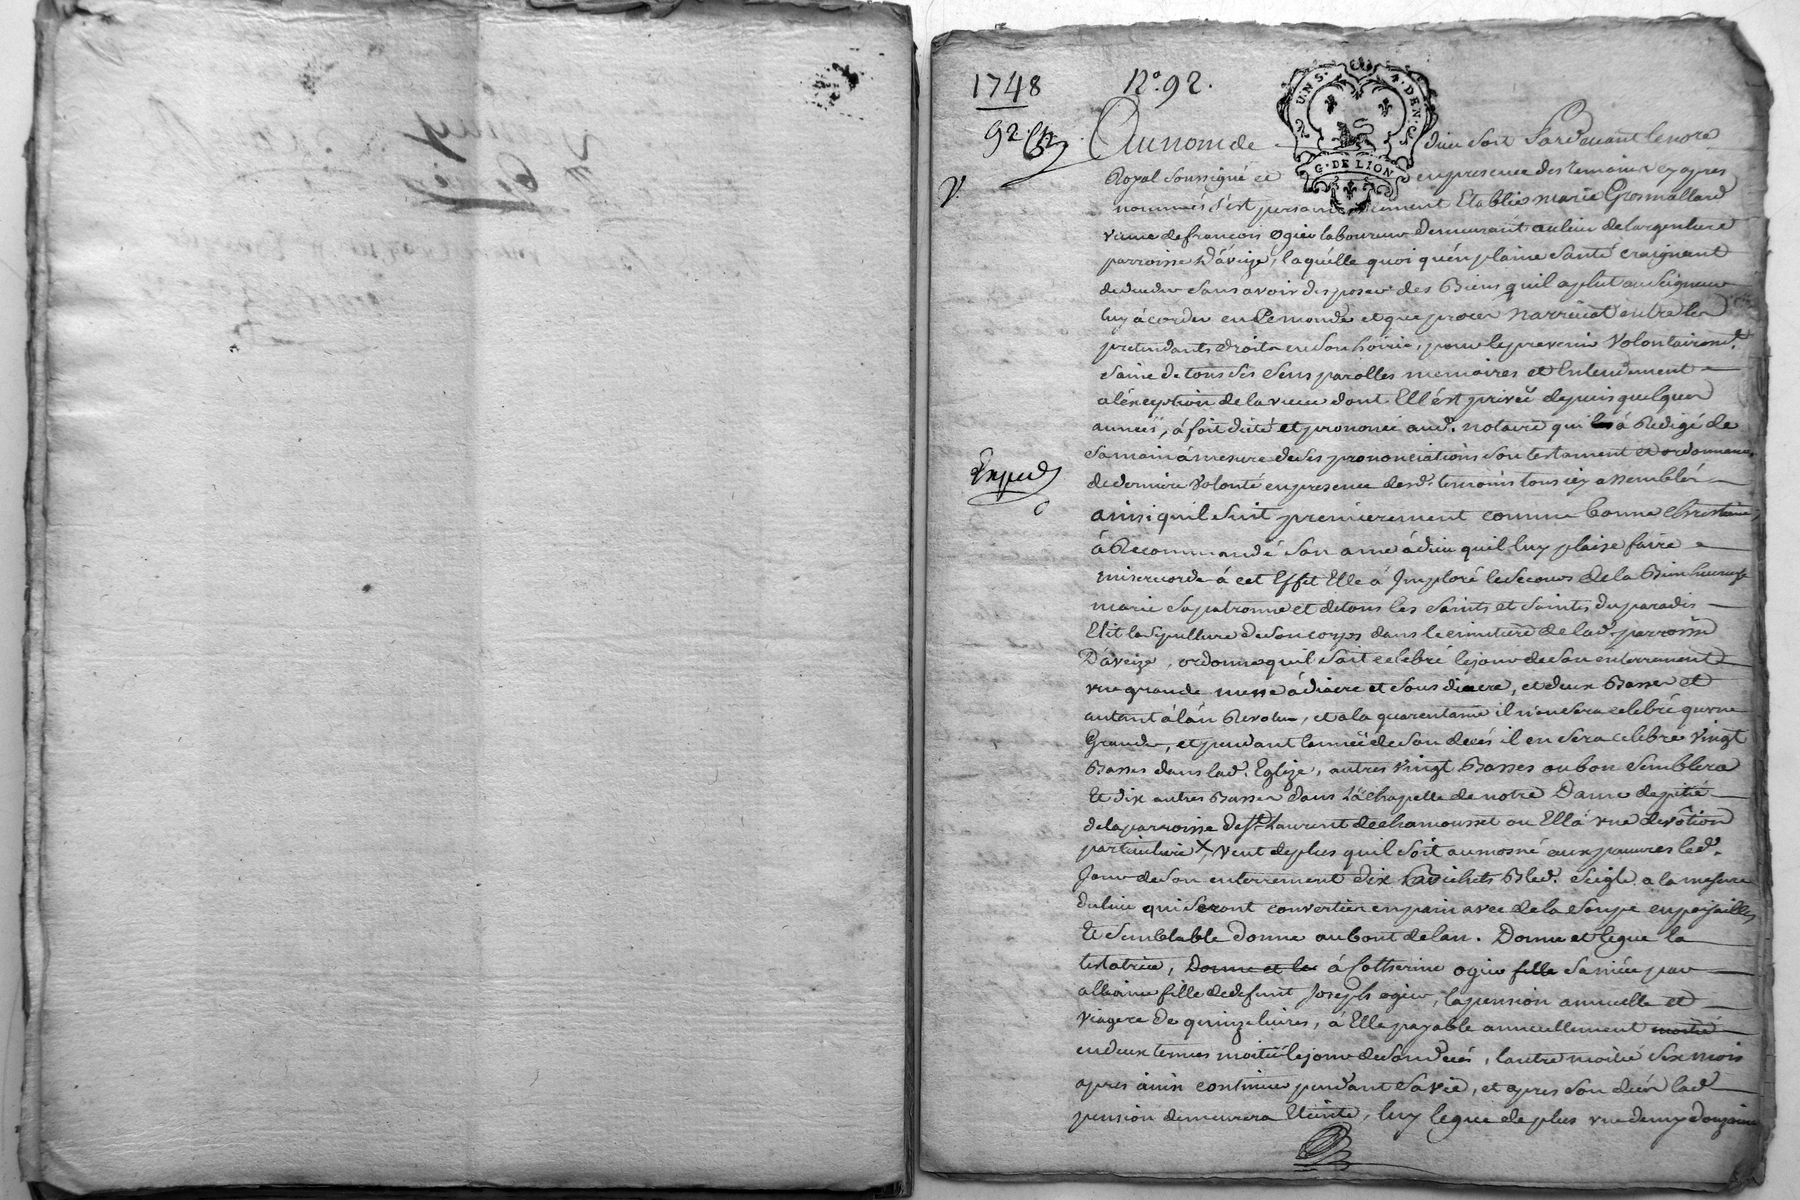 1748 N.º 92.
92.
UN S. A DEN. S
G. DE LION
Au nom de dieu soit Pardevant le no.re
Royal soussigné et en presence des temoins cy apres
nommés s'est personnellement Etablie marie Grosmallard
veuve de francois ogier laboureur demeurant au lieu de largentiere
parroisse D'aveize, laquelle quoi qu'en plaine santé craignant
de deceder sans avoir disposer des Biens qu'il a plut au seigneur
luy acorder en Ce monde et que proces n'arrivat entre les
pretendants droits en son hoirie, pour le prevenir volontairem.t
saine de tous ses sens parolles memoires et Entendement
a l'exeption de la veue dont Ell'ést privée depuis quelques
années, á fait dicté et prononcé aud. notaire qui l'a á Redigé de
sa main á mesure de ses prononciations son testament et ordonnance
de derniere volonté en presence desd. temoins tous icy assemblés
ainsi quil suit premierement comme bonne Chrestienne,
á Recommandé son ame á dieu quil luy plaise faire
misericorde á cet Effet Elle á Imploré le secours de la Bienheureuse
marie sa patronne et de tous les saints et saintes du paradis
Elit la sepulture de son corps dans le cimetiere de lad. parroisse
D'aveize, ordonne quil soit celebré le jour de son enterrement
une grande messe á diacre et sous diacre, et deux Basses et
autant á l'an Revolu, et a la quarentaine il n'en sera celebré qu'une
Grande, et pendant l'année de son decés il en sera celebré vingt
Basses dans lad. Eglize, autres vingt Basses ou bon semblera
Et dix autres Basses dans la Chapelle de notre Dame de pitié
de la parroisse de S.t Laurent de chamousset ou Ell'a une devôtion
particuliere X, veut de plus quil soit aumosné aux pauvres led.
Jour de son enterrement dix bichets Bled. seigle a la mesure
du lieu qui seront converties en pain avec de la soupe
Et semblable donne au bout de lan. Donne et legue la
testatrice, Donne et le á Catherine ogier fille sa niéce par
alliance fille de defunt Joseph ogier, la pension annuelle et
viagere de quinze livres, á Elle payable annuellement moitié
en deux termes moitié le jour de son decés, l'autre moitié six mois
apres ainsi continuer pendant sa vie, et apres son decés lad.
pension demeurera Eteinte, luy legue de plus une demy douzaine
Exped.